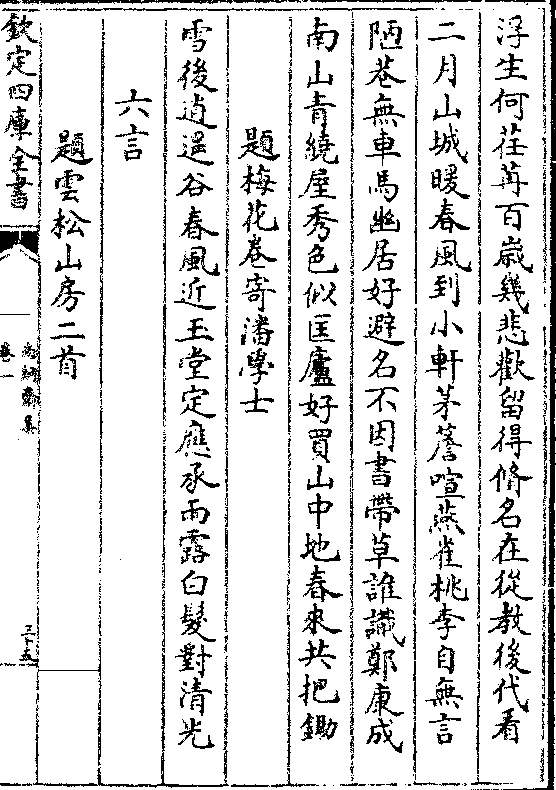 浮生何荏苒百歳幾悲歡留得脩名在從教後代看
二月山城暖春風到小軒茅簷喧燕雀桃李自無言
陋巷無車馬幽居好避名不因書帶草誰識鄭康成
南山青繞屋秀色似匡廬好買山中地春來共把鋤
題梅花卷寄潘學士
雪後逍遥谷春風近玉堂定應承雨露白髪對清光
六言
題雲松山房二首
欽定四庫全書
卷一
三十五